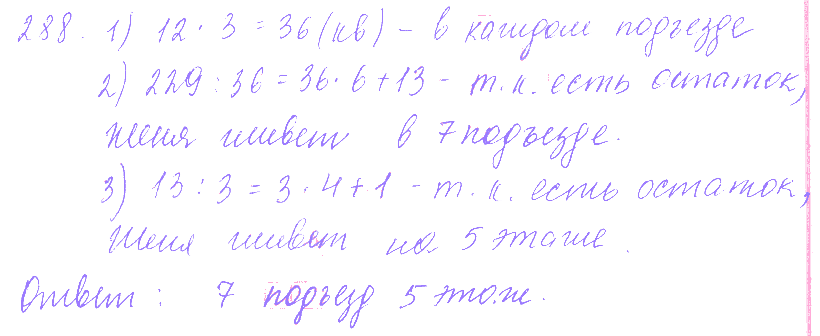 288. 1) 12 · 3 = 36 (кв) - в каждом подъезде
2) 229 : 36 = 36 · 6 + 13 - т. к. есть остаток,
Женя живет в 7 подъезде.
3) 13 : 3 = 3 · 4 + 1 - т. к. есть остаток,
Женя живет на 5 этаже.
Ответ: 7 подъезд 5 этаж.